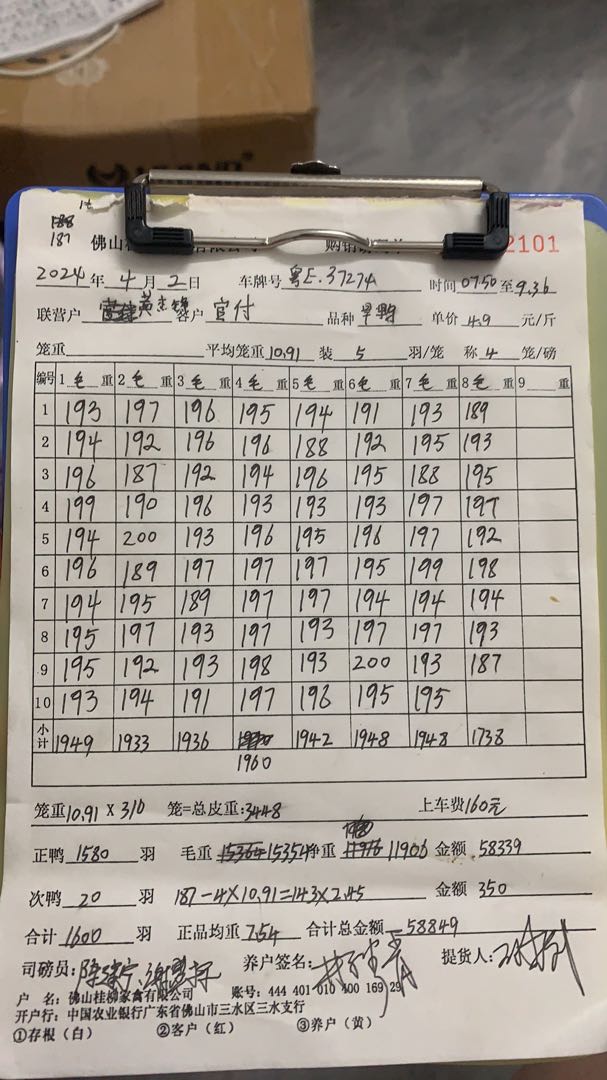 188
187 佛山桂 购销 2101
2024年4月2日 车牌号 粤E.37274 时间07:50至9.36
联营户 客户 官付 品种 单价4.9元/斤
笼重 平均笼重10.91 装5羽/笼 称4笼/磅
编号 1毛重 2毛重 3毛重 4毛重 5毛重 6毛重 7毛重 8毛重 9重
1 193 197 196 195 194 191 193 189
2 194 192 196 196 188 192 195 193
3 196 187 192 194 196 195 188 195
4 199 190 196 193 193 193 197 197
5 194 200 193 196 195 196 197 192
6 196 189 197 197 197 195 199 198
7 194 195 189 197 197 194 194 194
8 195 197 193 197 193 197 197 193
9 195 192 193 198 193 200 193 187
10 193 194 191 197 196 195 195
小计 1949 1933 1936 1942 1948 1948 1738
1960
笼重10.91×310 笼=总皮重:3448 上车费160元
正鸭1580羽 毛重 15354 净重 11906 金额58339
次鸭20羽 187-4×10.91=143×2.45 金额350
合计1600羽 正品均重7.54 合计总金额58849
司磅员: 养户签名: 提货人:
户 名:佛山桂柳家禽有限公司 账号:444 401 010 400 169 29
开户行:中国农业银行广东省佛山市三水区三水支行
①存根(白) ②客户(红) ③养户(黄)